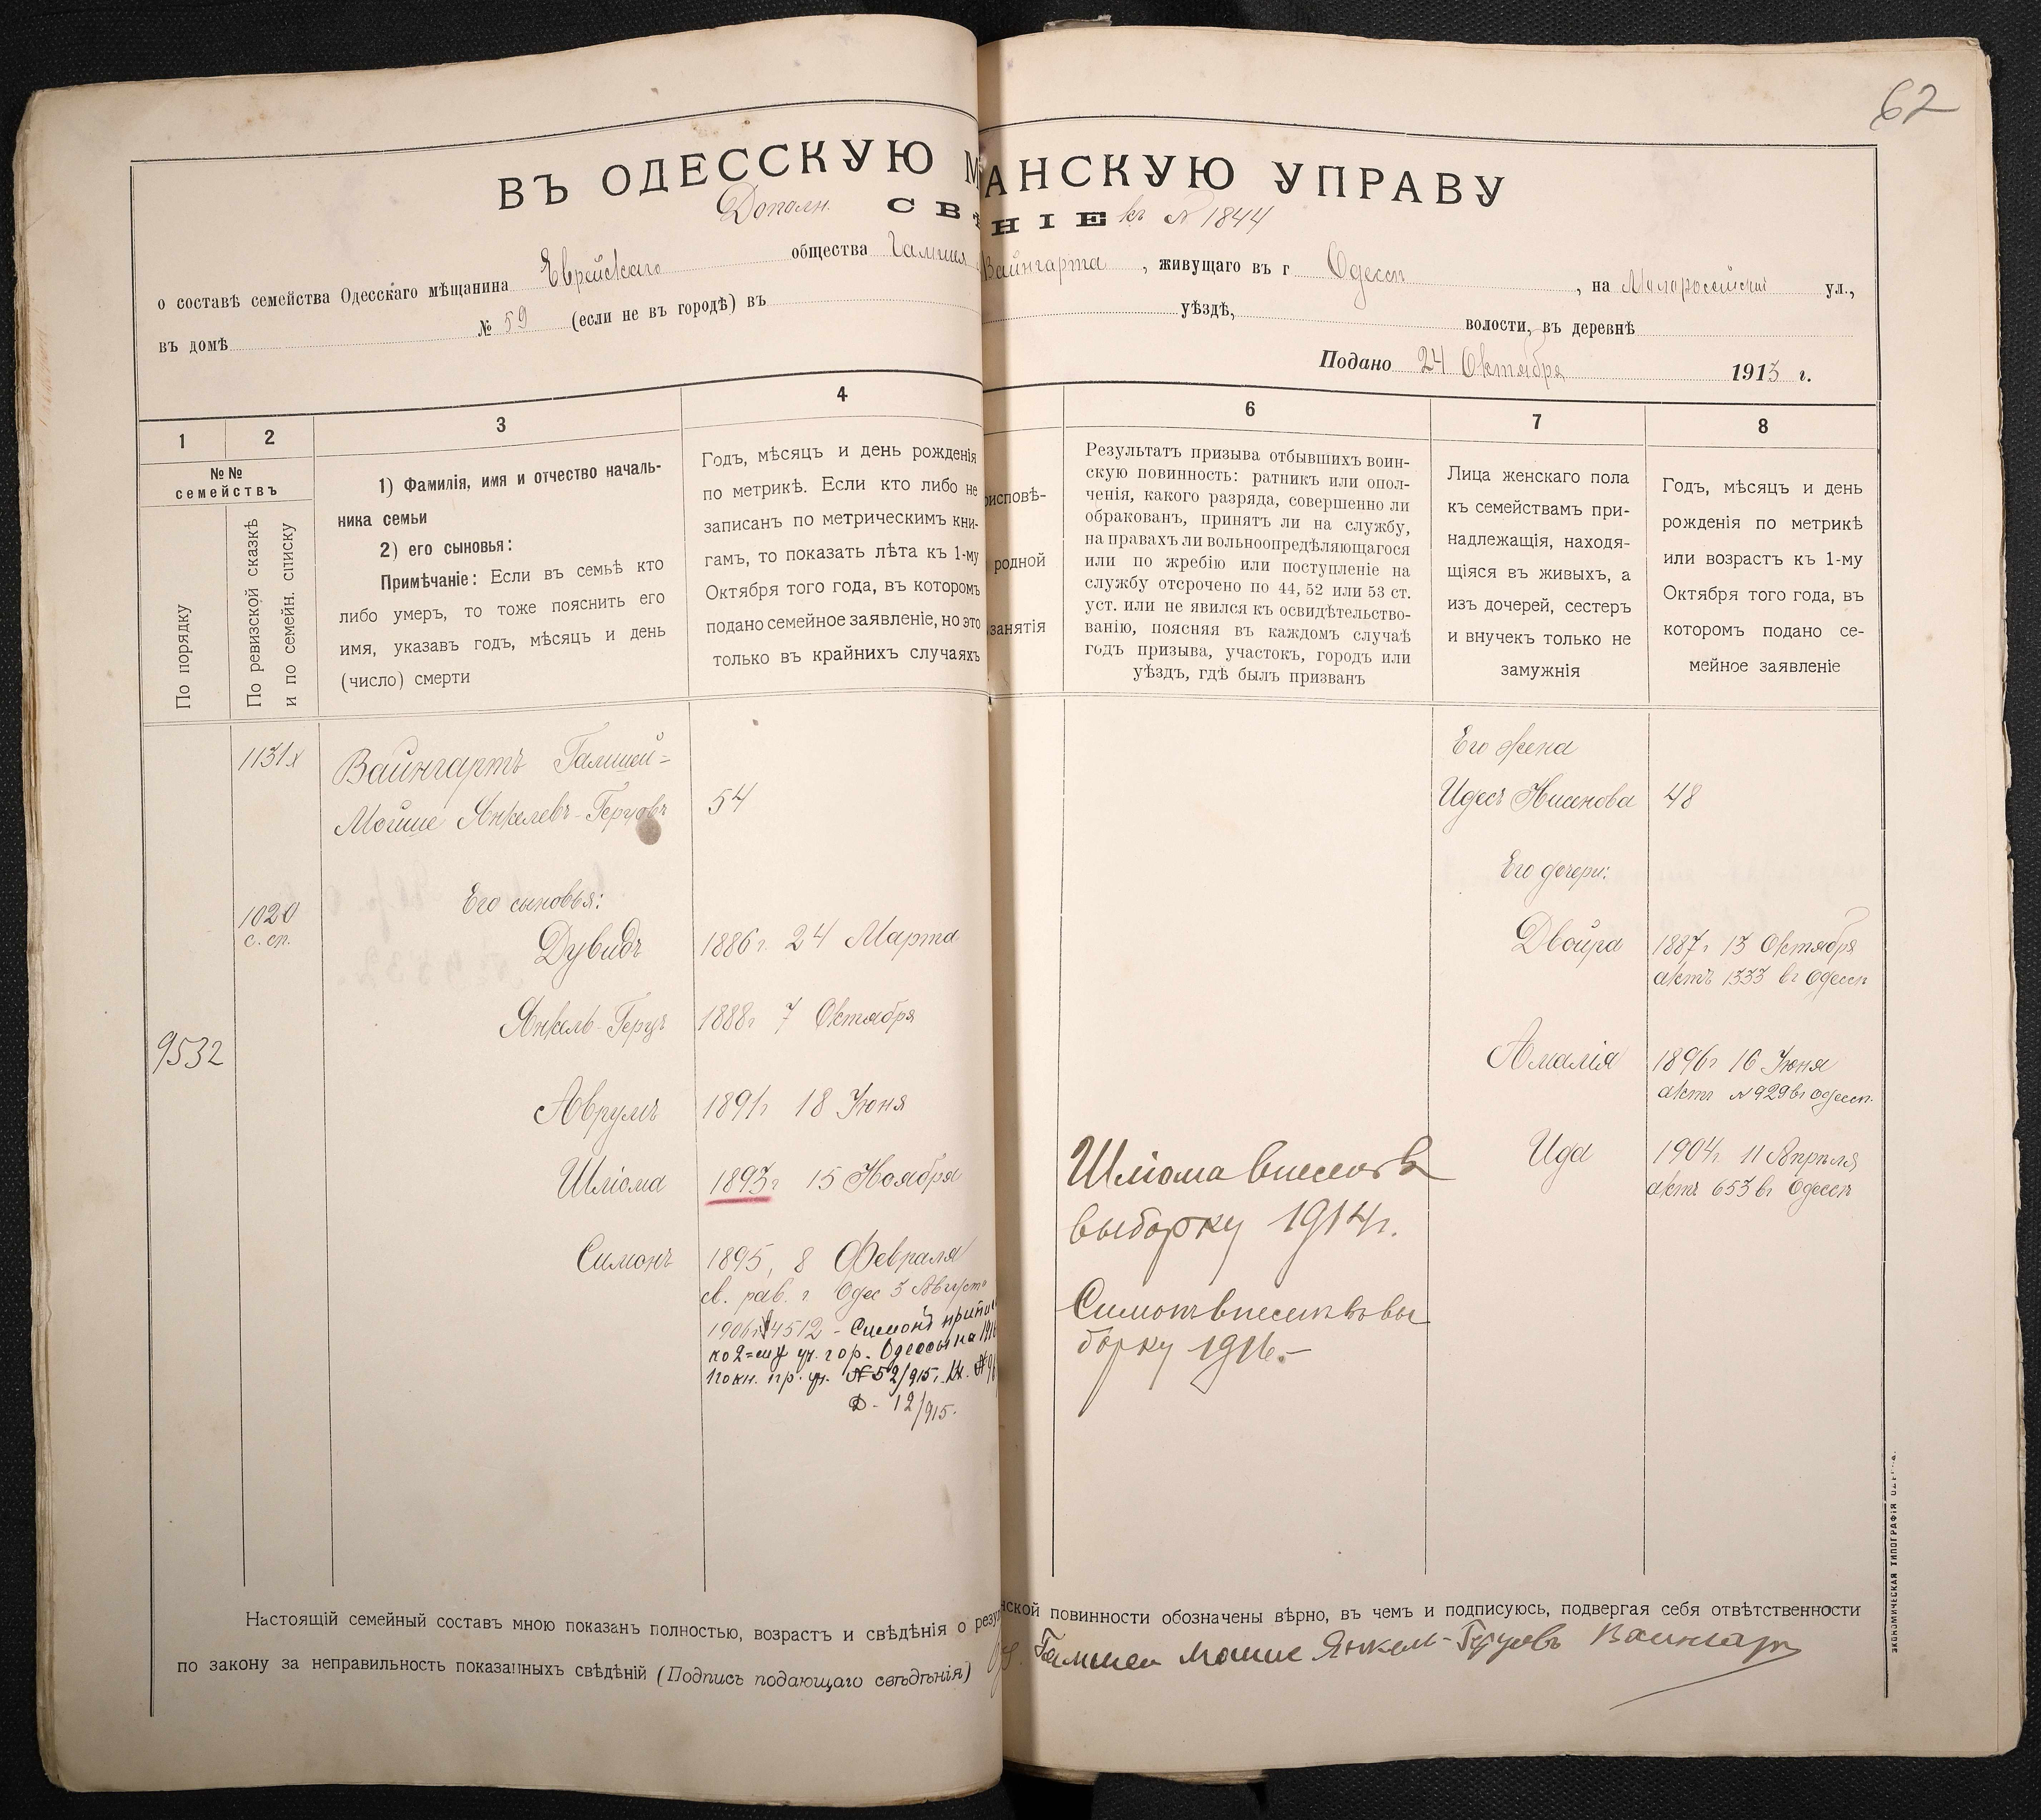 62
ВЪ ОДЕССКУЮ М АНСКУЮ УПРАВУ
Дополн. СВѢ НІЕ къ № 1844
о составѣ семейства Одесскаго мѣщанина Еврейскаго общества Галшея Вайнгарта, живущаго въ г Одессѣ, на Малороссійской ул.,
въ домѣ № 59 (если не въ городѣ) въ уѣздѣ, волости, въ деревнѣ
Подано 24 Октября 1913 г.
1
2
3
4
6
7
8
№№
семействъ
По порядку
По ревизской сказкѣ
и по семейн. списку
1) Фамилія, имя и отчество началь-
ника семьи
2) его сыновья:
Примѣчаніе: Если въ семьѣ кто
либо умеръ, то тоже пояснить его
имя, указавъ годъ, мѣсяцъ и день
(число) смерти
Годъ, мѣсяцъ и день рожденія
по метрикѣ. Если кто либо не
записанъ по метрическимъ кни-
гамъ, то показать лѣта къ 1-му
Октября того года, въ которомъ
подано семейное заявленіе, но это
только въ крайнихъ случаяхъ
рисповѣ-
родной
занятія
Результатъ призыва отбывшихъ воин-
скую повинность: ратникъ или опол-
ченія, какого разряда, совершенно ли
обракованъ, принятъ ли на службу,
на правахъ ли вольноопредѣляющагося
или по жребію или поступленіе на
службу отсрочено по 44, 52 или 53 ст.
уст. или не явился къ освидѣтельство-
ванію, поясняя въ каждомъ случаѣ
годъ призыва, участокъ, городъ или
уѣздъ, гдѣ былъ призванъ
Лица женскаго пола
къ семействамъ при-
надлежащія, находя-
щіяся въ живыхъ, а
изъ дочерей, сестеръ
и внучекъ только не
замужнія
Годъ, мѣсяцъ и день
рожденія по метрикѣ
или возрастъ къ 1-му
Октября того года, въ
которомъ подано се-
мейное заявленіе
9532
1131
1020
с. сп.
Вайнгартъ Галшей-
Мошше Янкелевъ-Герцовъ 54
Его сыновья:
Дувидъ 1886 г. 24 Марта
Янкель-Герцъ 1888 г 7 Октября
Аврумъ 1891 г 18 Іюня
Шліома 1893 г 15 Ноября
Симонъ 1895, 8 Февраля
св. рав. г Одес 3 Август
1906 г № 4512 - Симонъ припис
ко 2=му уч. гор. Одессы на 1916
№ 52/915.
Д - 12/915.
Шліома внесенъ въ
выборку 1914 г.
Симонъ внесенъ въ вы
борку 1916.-
Его жена
Идесъ Нисенова 48
Его дочери:
Двойра 1887 г 13 Октября
актъ 1333 въ Одессѣ
Амалія 1896 г 16 Іюня
актъ № 929 въ Одессѣ.
Ида 1904 г. 11 Апрѣля
актъ 653 въ Одессѣ
Настоящій семейный составъ мною показанъ полностью, возрастъ и свѣдѣнія о резул нской повинности обозначены вѣрно, въ чемъ и подписуюсь, подвергая себя отвѣтственности
по закону за неправильность показанныхъ свѣдѣній (Подпись подающаго свѣдѣнія) Галшей Мошше Янкель-Герцовъ Вайнгартъ
ЭКОНОМИЧЕСКАЯ ТИПОГРАФІЯ